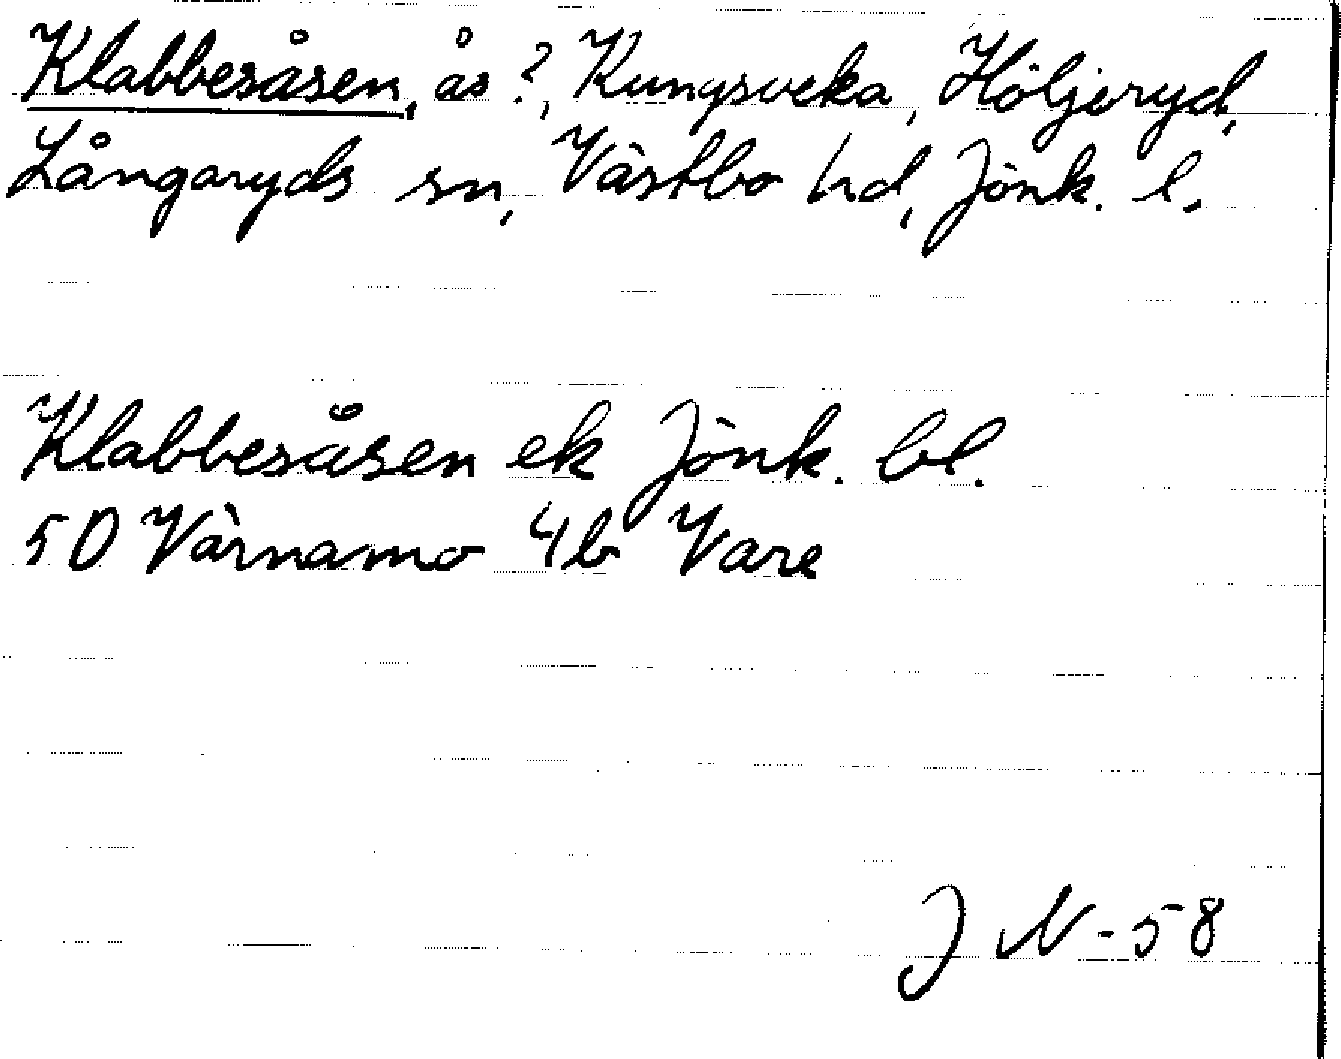 Klabbesåsen, ås?, Kungsveka, Höljeryd,
Långaryds sn, Västbo hd, Jönk. l.
Klabbesåsen ek Jönk. bl.
5D Värnamo 4b Vare
J N-58